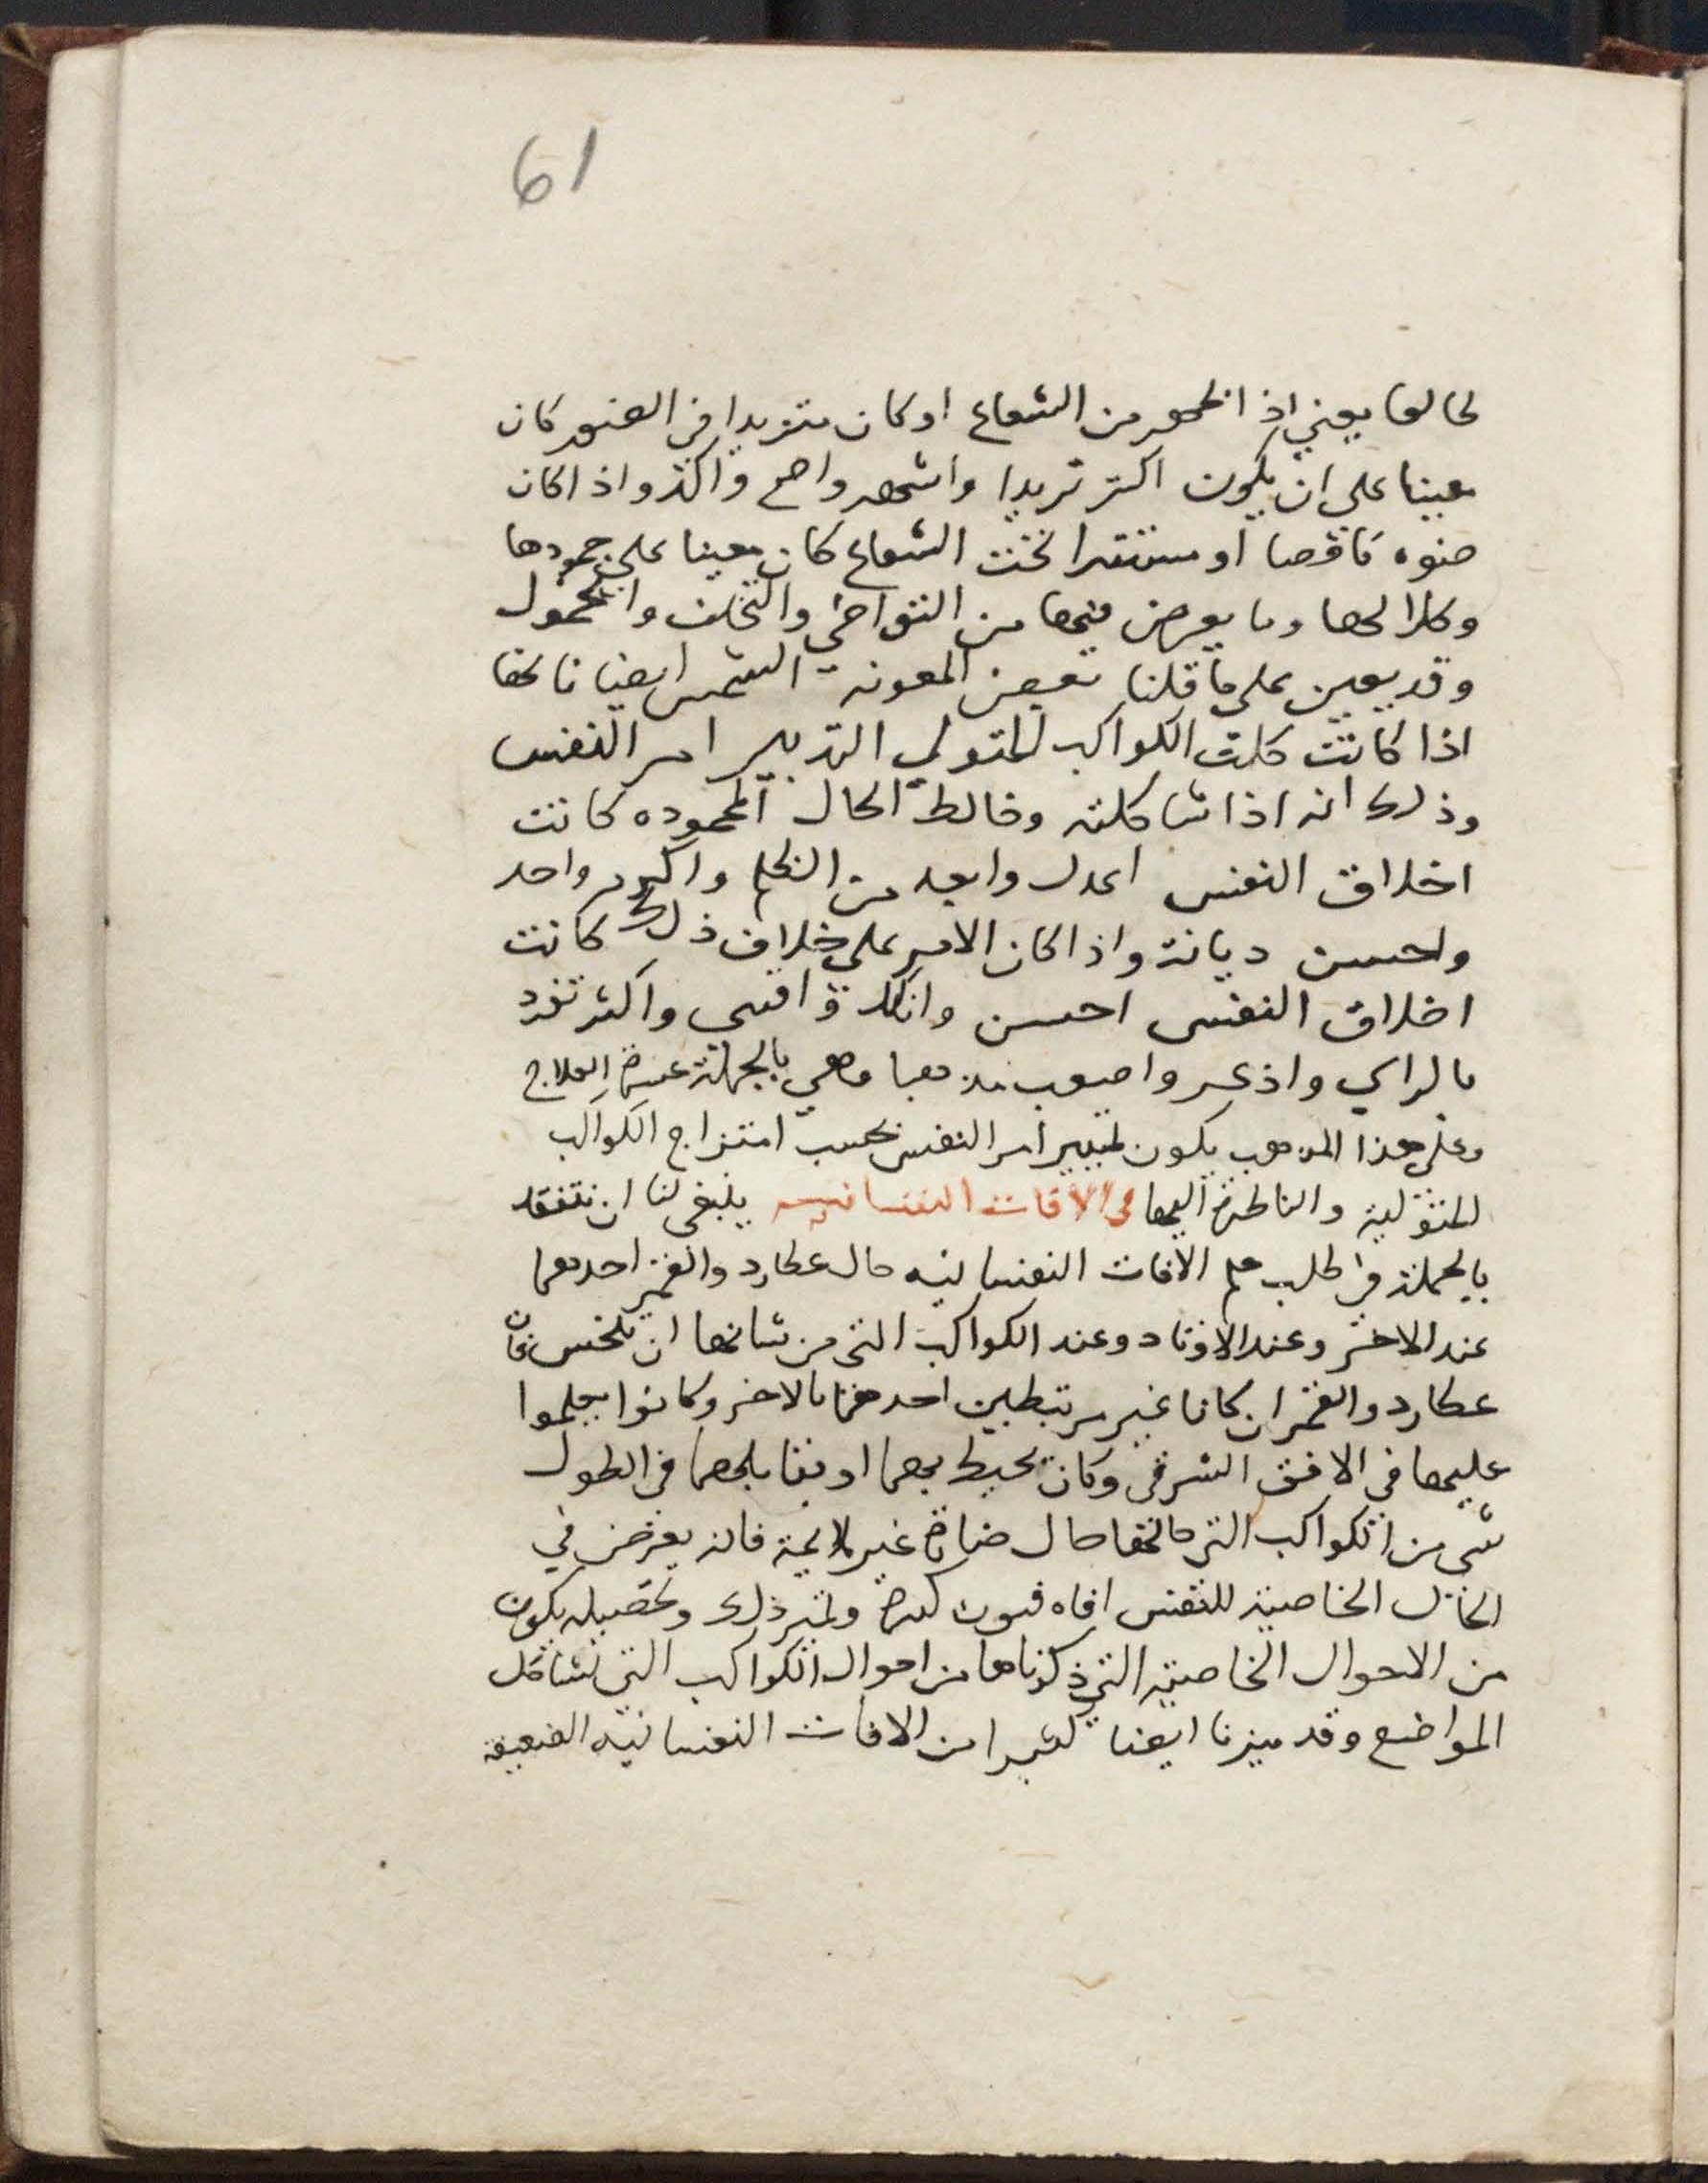 61
لحالها يعني اذا ظهر من الشعاع او كان متزيدا في الضوء كان
معينا على ان يكون اكثر تزيدا واشهر واصح واكثر واذا كان
ضوه ناقصا او مستترا تحت الشعاع كان معينا على جمودها
وكلالها وما يعرض فيها من التواخي والتخلف والخمول
وقد يعين على ما قلنا بعض المعونة الشمس ايضا فانها
اذا كانت كلت الكواكب المتولي التدبير امر النفس
وذلك انه اذا شاكلته وخالط الحال المحموده كانت
اخلاق النفس اعدل وابعد من الظلم واكبر واحد
واحسن ديانة واذا كان الامر على خلاف ذلك كانت
اخلاق النفس احسن وانكد واقسى واكثر تفرد
بالراي واذعر واصعب مذهبا وهي بالجملة عسرة العلاج
وعلى هذا المذهب يكون تمييز امر النفس بحسب امتزاج الكواكب
المتولية والناظرة اليها في الآفات النفسانيه ينبغي لنا ان نتفقد
بالجملة في طلب علم الافات النفسانيه حال عطارد والقمر احدهما
عند الاخر وعند الاوتاد وعند الكواكب التي من شانها ان تنحس فان
عطارد والقمر ان كانا غير مرتبطين احدهما بالاخر وكانوا يجلموا
عليها في الافق الشرقي وكان يحيط بهما او يقابلهما في الطول
شي من الكواكب التي حالها حال ضارة غير ملايمة فانه يعرض في
الحال الخاصية للنفس افاه فنون كثيرة وتميز ذلك وتحصيله يكون
من الاحوال الخاصية التي ذكرناها من احوال الكواكب التي تشاكل
المواضع وقد ميزنا ايضا كثيرا من الافات النفسانيه الضعيفة